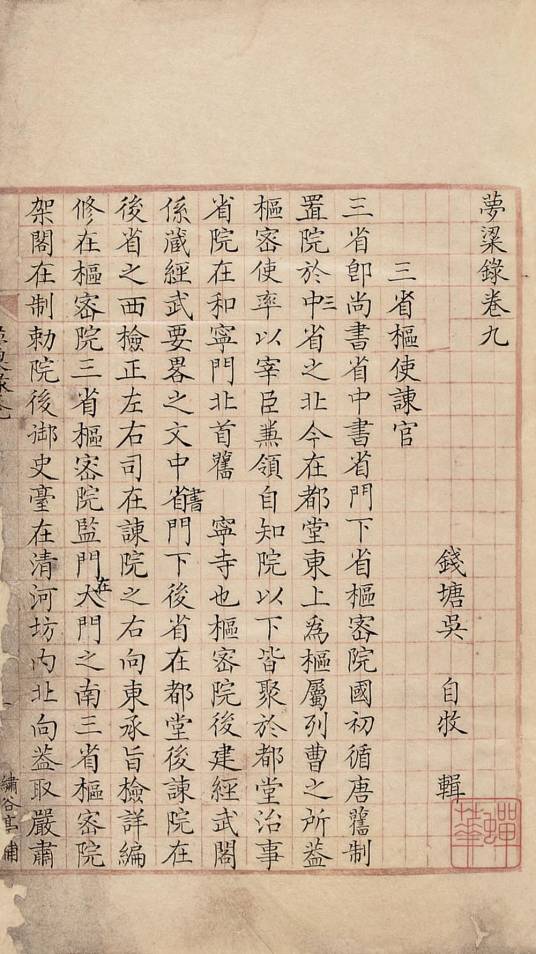 夢粱錄卷九
錢塘吳 自牧 輯
三省樞使諫官
三省卽尚書省中書省門下省樞密院國初循唐舊制
置院於中三省之北今在都堂東上為樞屬列曹之所蓋
樞密使率以宰臣兼領自知院以下皆聚於都堂治事
省院在和寧門北首舊 寧寺也樞密院後建經武閣
係藏經武要畧之文中書省門下後省在都堂後諫院在
後省之西檢正左右司在諫院之右向東承旨檢詳編
修在樞密院三省樞密院監門在大門之南三省樞密院
架閣在制勅院後御史臺在清河坊內北向蓋取嚴肅
繡谷亭
蟬華